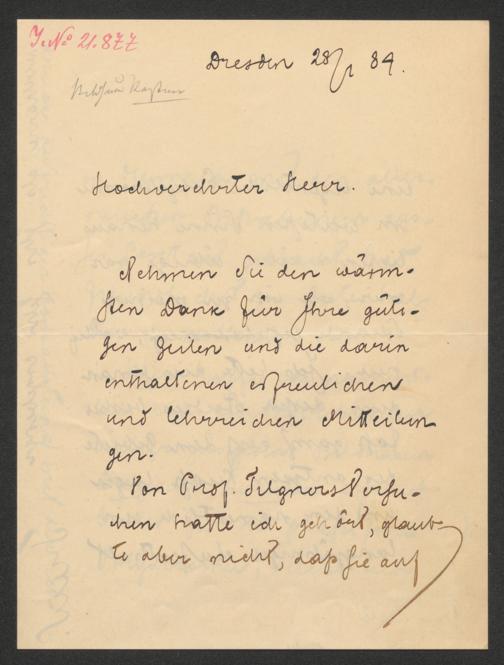 J. No 21.877
Dresden 28/1 89.
Hochverehrter Herr.
Nehmen Sie den wärm-
sten Dank für Ihre güti-
gen Zeilen und die darin
enthaltenen erfreulichen
und lehrreichen Mitteilun
gen.
Von Prof. Tilgners Versu-
chen hatte ich gehört, glaub-
te aber nicht, daß sie auf